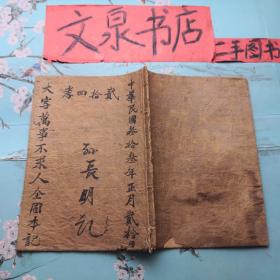 文泉书店
二手图书
中華民國叁拾叁年正月貳拾日
貳拾四孝
孙長明記
大字萬事不求人全圖本記